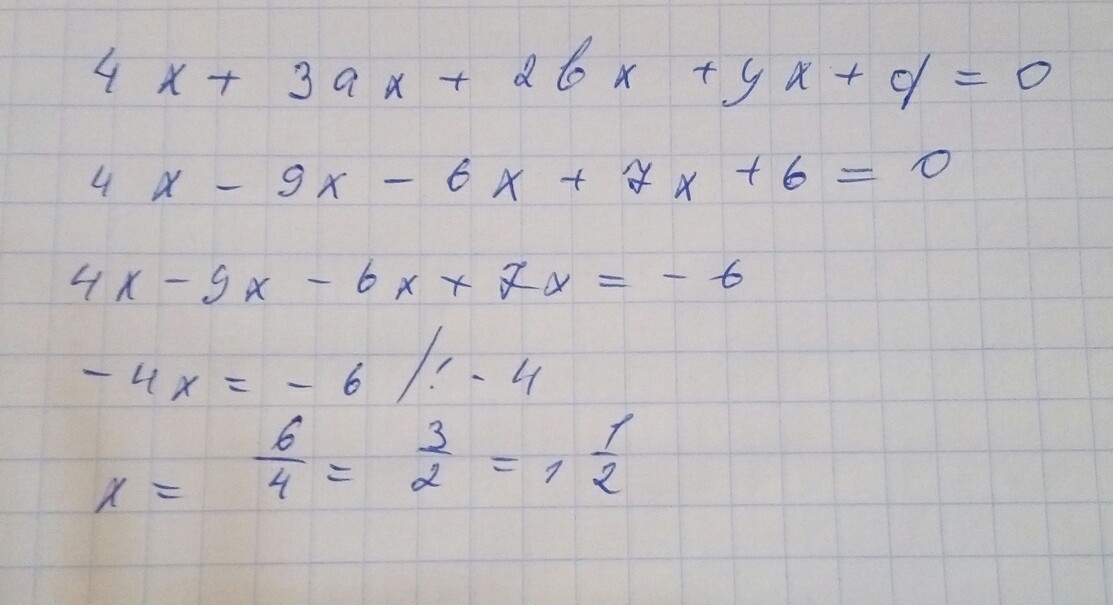 4x + 3ax + 2bx + yx + d = 0
4x - 9x - 6x + 7x + 6 = 0
4x - 9x - 6x + 7x = - 6
- 4x = - 6 /: - 4
x = 6/4 = 3/2 = 1 1/2